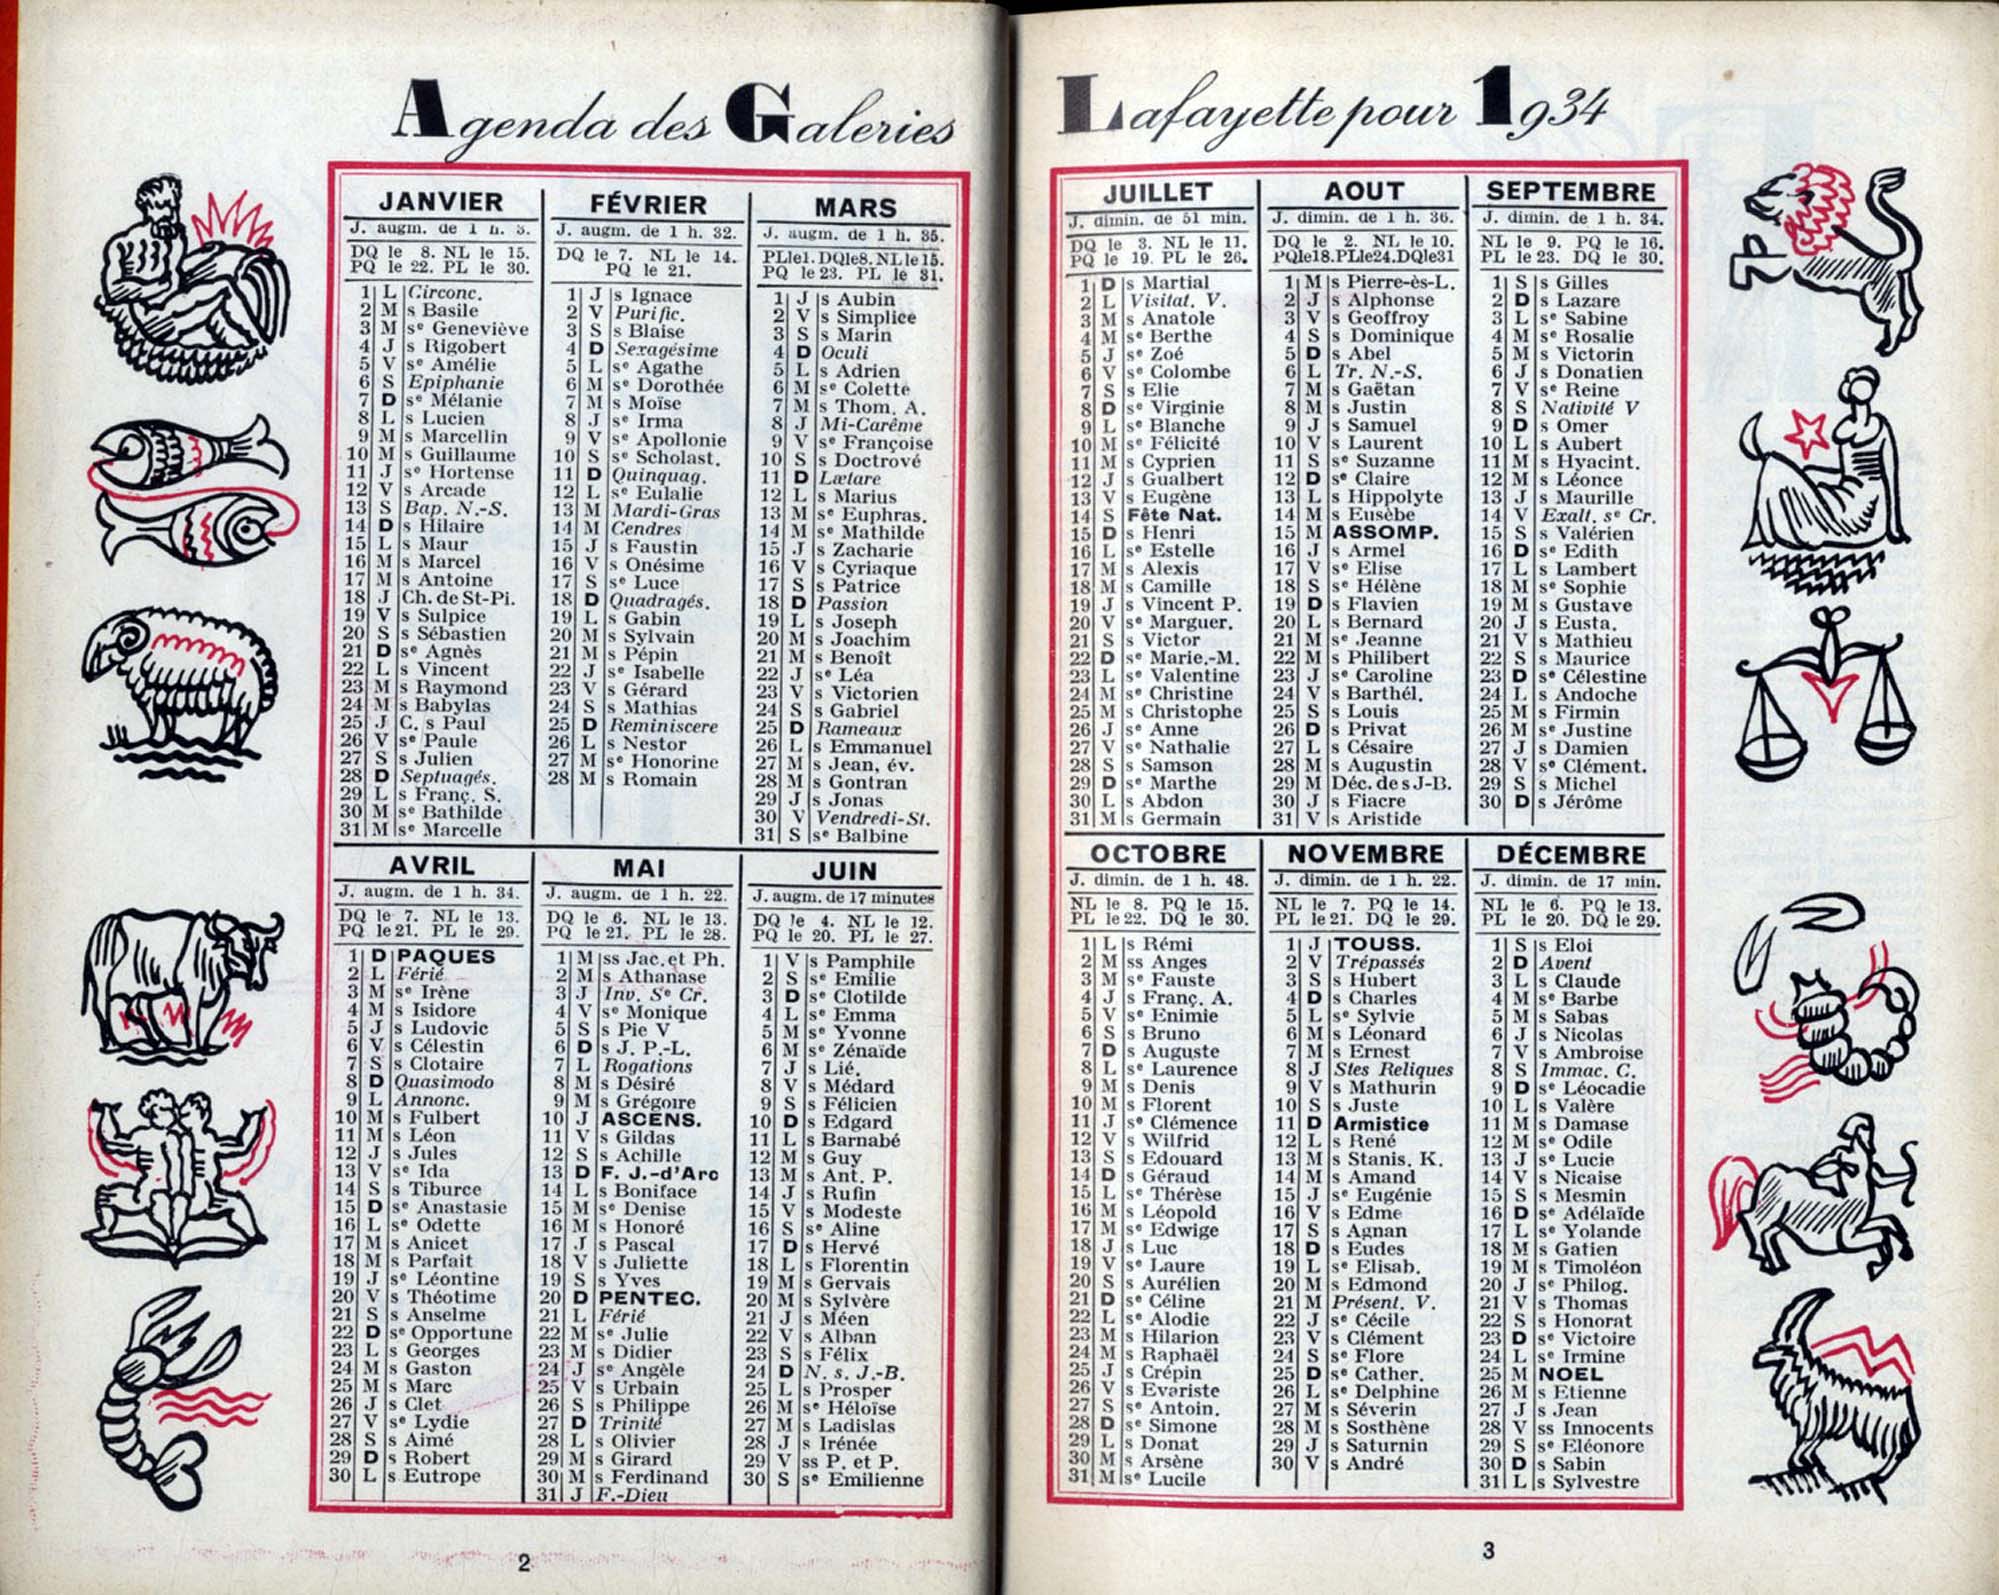 Agenda des Galeries
JANVIER
J. augm. de 1 h. 3.
DQ le 8. NL le 15.
PQ le 22. PL le 30.
1 L Circonc.
2 M s Basile
3 M sᵉ Geneviève
4 J s Rigobert
5 V sᵉ Amélie
6 S Epiphanie
7 D sᵉ Mélanie
8 L s Lucien
9 M s Marcellin
10 M s Guillaume
11 J sᵉ Hortense
12 V s Arcade
13 S Bap. N.-S.
14 D s Hilaire
15 L s Maur
16 M s Marcel
17 M s Antoine
18 J Ch. de St-Pi.
19 V s Sulpice
20 S s Sébastien
21 D sᵉ Agnès
22 L s Vincent
23 M s Raymond
24 M s Babylas
25 J C. s Paul
26 V sᵉ Paule
27 S s Julien
28 D Septuagés.
29 L s Franç. S.
30 M sᵉ Bathilde
31 M sᵉ Marcelle
FÉVRIER
J. augm. de 1 h. 32.
DQ le 7. NL le 14.
PQ le 21.
1 J s Ignace
2 V Purific.
3 S s Blaise
4 D Sexagésime
5 L sᵉ Agathe
6 M sᵉ Dorothée
7 M s Moïse
8 J sᵉ Irma
9 V sᵉ Apollonie
10 S sᵉ Scholast.
11 D Quinquag.
12 L sᵉ Eulalie
13 M Mardi-Gras
14 M Cendres
15 J s Faustin
16 V s Onésime
17 S sᵉ Luce
18 D Quadragés.
19 L s Gabin
20 M s Sylvain
21 M s Pépin
22 J sᵉ Isabelle
23 V s Gérard
24 S s Mathias
25 D Reminiscere
26 L s Nestor
27 M sᵉ Honorine
28 M s Romain
MARS
J. augm. de 1 h. 35.
PLle1.DQle8.NLle15.
PQ le 23. PL le 31.
1 J s Aubin
2 V s Simplice
3 S s Marin
4 D Oculi
5 L s Adrien
6 M sᵉ Colette
7 M s Thom. A.
8 J Mi-Carême
9 V sᵉ Françoise
10 S s Doctrové
11 D Lætare
12 L s Marius
13 M sᵉ Euphras.
14 M sᵉ Mathilde
15 J s Zacharie
16 V s Cyriaque
17 S s Patrice
18 D Passion
19 L s Joseph
20 M s Joachim
21 M s Benoît
22 J sᵉ Léa
23 V s Victorien
24 S s Gabriel
25 D Rameaux
26 L s Emmanuel
27 M s Jean, év.
28 M s Gontran
29 J s Jonas
30 V Vendredi-St.
31 S sᵉ Balbine
AVRIL
J. augm. de 1 h. 34.
DQ le 7. NL le 13.
PQ le 21. PL le 29.
1 D PAQUES
2 L Férié
3 M sᵉ Irène
4 M s Isidore
5 J s Ludovic
6 V s Célestin
7 S s Clotaire
8 D Quasimodo
9 L Annonc.
10 M s Fulbert
11 M s Léon
12 J s Jules
13 V sᵉ Ida
14 S s Tiburce
15 D sᵉ Anastasie
16 L sᵉ Odette
17 M s Anicet
18 M s Parfait
19 J sᵉ Léontine
20 V s Théotime
21 S s Anselme
22 D sᵉ Opportune
23 L s Georges
24 M s Gaston
25 M s Marc
26 J s Clet
27 V sᵉ Lydie
28 S s Aimé
29 D s Robert
30 L s Eutrope
MAI
J. augm. de 1 h. 22.
DQ le 6. NL le 13.
PQ le 21. PL le 28.
1 M ss Jac. et Ph.
2 M s Athanase
3 J Inv. Sᵉ Cr.
4 V sᵉ Monique
5 S s Pie V
6 D s J. P.-L.
7 L Rogations
8 M s Désiré
9 M s Grégoire
10 J ASCENS.
11 V s Gildas
12 S s Achille
13 D F. J.-d'Arc
14 L s Boniface
15 M sᵉ Denise
16 M s Honoré
17 J s Pascal
18 V s Juliette
19 S s Yves
20 D PENTEC.
21 L Férié
22 M sᵉ Julie
23 M s Didier
24 J sᵉ Angèle
25 V s Urbain
26 S s Philippe
27 D Trinité
28 L s Olivier
29 M s Girard
30 M s Ferdinand
31 J F.-Dieu
JUIN
J. augm. de 17 minutes
DQ le 4. NL le 12.
PQ le 20. PL le 27.
1 V s Pamphile
2 S sᵉ Emilie
3 D sᵉ Clotilde
4 L sᵉ Emma
5 M sᵉ Yvonne
6 M sᵉ Zénaïde
7 J s Lié.
8 V s Médard
9 S s Félicien
10 D s Edgard
11 L s Barnabé
12 M s Guy
13 M s Ant. P.
14 J s Rufin
15 V s Modeste
16 S sᵉ Aline
17 D s Hervé
18 L s Florentin
19 M s Gervais
20 M s Sylvère
21 J s Méen
22 V s Alban
23 S s Félix
24 D N. s. J.-B.
25 L s Prosper
26 M sᵉ Héloïse
27 M s Ladislas
28 J s Irénée
29 V ss P. et P.
30 S sᵉ Emilienne
2
Lafayette pour 1934
JUILLET
J. dimin. de 51 min.
DQ le 3. NL le 11.
PQ le 19. PL le 26.
1 D s Martial
2 L Visitat. V.
3 M s Anatole
4 M sᵉ Berthe
5 J sᵉ Zoé
6 V sᵉ Colombe
7 S s Elie
8 D sᵉ Virginie
9 L sᵉ Blanche
10 M sᵉ Félicité
11 M s Cyprien
12 J s Gualbert
13 V s Eugène
14 S Fête Nat.
15 D s Henri
16 L sᵉ Estelle
17 M s Alexis
18 M s Camille
19 J s Vincent P.
20 V sᵉ Marguer.
21 S s Victor
22 D sᵉ Marie.-M.
23 L sᵉ Valentine
24 M sᵉ Christine
25 M s Christophe
26 J sᵉ Anne
27 V sᵉ Nathalie
28 S s Samson
29 D sᵉ Marthe
30 L s Abdon
31 M s Germain
AOUT
J. dimin. de 1 h. 36.
DQ le 2. NL le 10.
PQle18.PLle24.DQle31
1 M s Pierre-ès-L.
2 J s Alphonse
3 V s Geoffroy
4 S s Dominique
5 D s Abel
6 L Tr. N.-S.
7 M s Gaëtan
8 M s Justin
9 J s Samuel
10 V s Laurent
11 S sᵉ Suzanne
12 D sᵉ Claire
13 L s Hippolyte
14 M s Eusèbe
15 M ASSOMP.
16 J s Armel
17 V sᵉ Elise
18 S sᵉ Hélène
19 D s Flavien
20 L s Bernard
21 M sᵉ Jeanne
22 M s Philibert
23 J sᵉ Caroline
24 V s Barthél.
25 S s Louis
26 D s Privat
27 L s Césaire
28 M s Augustin
29 M Déc. de s J-B.
30 J s Fiacre
31 V s Aristide
SEPTEMBRE
J. dimin. de 1 h. 34.
NL le 9. PQ le 16.
PL le 23. DQ le 30.
1 S s Gilles
2 D s Lazare
3 L sᵉ Sabine
4 M sᵉ Rosalie
5 M s Victorin
6 J s Donatien
7 V sᵉ Reine
8 S Nativité V
9 D s Omer
10 L s Aubert
11 M s Hyacint.
12 M s Léonce
13 J s Maurille
14 V Exalt. sᵉ Cr.
15 S s Valérien
16 D sᵉ Edith
17 L s Lambert
18 M sᵉ Sophie
19 M s Gustave
20 J s Eusta.
21 V s Mathieu
22 S s Maurice
23 D sᵉ Célestine
24 L s Andoche
25 M s Firmin
26 M sᵉ Justine
27 J s Damien
28 V sᵉ Clément.
29 S s Michel
30 D s Jérôme
OCTOBRE
J. dimin. de 1 h. 48.
NL le 8. PQ le 15.
PL le 22. DQ le 30.
1 L s Rémi
2 M ss Anges
3 M sᵉ Fauste
4 J s Franç. A.
5 V sᵉ Enimie
6 S s Bruno
7 D s Auguste
8 L sᵉ Laurence
9 M s Denis
10 M s Florent
11 J sᵉ Clémence
12 V s Wilfrid
13 S s Edouard
14 D s Géraud
15 L sᵉ Thérèse
16 M s Léopold
17 M sᵉ Edwige
18 J s Luc
19 V sᵉ Laure
20 S s Aurélien
21 D sᵉ Céline
22 L sᵉ Alodie
23 M s Hilarion
24 M s Raphaël
25 J s Crépin
26 V s Evariste
27 S sᵉ Antoin.
28 D sᵉ Simone
29 L s Donat
30 M s Arsène
31 M sᵉ Lucile
NOVEMBRE
J. dimin. de 1 h. 22.
NL le 7. PQ le 14.
PL le 21. DQ le 29.
1 J TOUSS.
2 V Trépassés
3 S s Hubert
4 D s Charles
5 L sᵉ Sylvie
6 M s Léonard
7 M s Ernest
8 J Stes Reliques
9 V s Mathurin
10 S s Juste
11 D Armistice
12 L s René
13 M s Stanis. K.
14 M s Amand
15 J sᵉ Eugénie
16 V s Edme
17 S s Agnan
18 D s Eudes
19 L sᵉ Elisab.
20 M s Edmond
21 M Présent. V.
22 J sᵉ Cécile
23 V s Clément
24 S sᵉ Flore
25 D sᵉ Cather.
26 L sᵉ Delphine
27 M s Séverin
28 M s Sosthène
29 J s Saturnin
30 V s André
DÉCEMBRE
J. dimin. de 17 min.
NL le 6. PQ le 13.
PL le 20. DQ le 29.
1 S s Eloi
2 D Avent
3 L s Claude
4 M sᵉ Barbe
5 M s Sabas
6 J s Nicolas
7 V s Ambroise
8 S Immac. C.
9 D sᵉ Léocadie
10 L s Valère
11 M s Damase
12 M sᵉ Odile
13 J sᵉ Lucie
14 V s Nicaise
15 S s Mesmin
16 D sᵉ Adélaïde
17 L sᵉ Yolande
18 M s Gatien
19 M s Timoléon
20 J sᵉ Philog.
21 V s Thomas
22 S s Honorat
23 D sᵉ Victoire
24 L sᵉ Irmine
25 M NOEL
26 M s Etienne
27 J s Jean
28 V ss Innocents
29 S sᵉ Eléonore
30 D s Sabin
31 L s Sylvestre
3